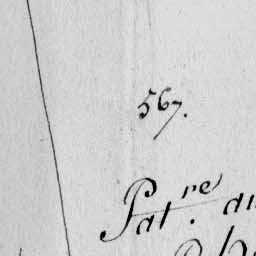 567.
Pat.re du